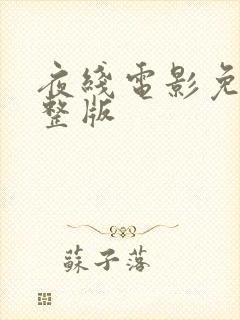 夜线電影免
整版
蘇子落